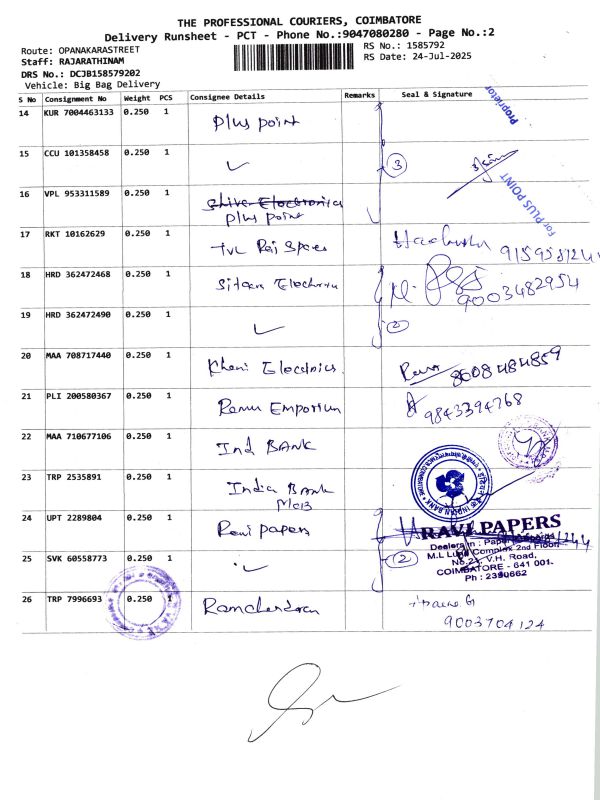 THE PROFESSIONAL COURIERS, COIMBATORE
Delivery Runsheet - PCT - Phone No.:9047080280 - Page No.:2
Route: OPANAKARASTREET
RS No.: 1585792
Staff: RAJARATHINAM
RS Date: 24-Jul-2025
DRS No.: DCJB158579202
Vehicle: Big Bag Delivery
S No Consignment No Weight PCS Consignee Details Remarks Seal & Signature
14 KUR 7004463133 0.250 1 plus point
Proprietor
15 CCU 101358458 0.250 1 ✓
3
16 VPL 953311589 0.250 1 Electronics
plus point
For PLUS POINT
17 RKT 10162629 0.250 1
18 HRD 362472468 0.250 1
9003482954
19 HRD 362472490 0.250 1 ✓
2
20 MAA 708717440 0.250 1 8608484859
21 PLI 200580367 0.250 1 Ramu Emporium 9843394768
22 MAA 710677106 0.250 1 Ind BANK
23 TRP 2535891 0.250 1 India Bank
INDIAN BANK
24 UPT 2289804 0.250 1 Ravi papers
RAVI PAPERS
Dealers in : Paper
M.L Complex 2nd Floor
25 SVK 60558773 0.250 1 ✓
2
No.21, V.H. Road,
COIMBATORE - 641 001.
Ph : 2390662
26 TRP 7996693 0.250 1 Ramchandran
9003704124